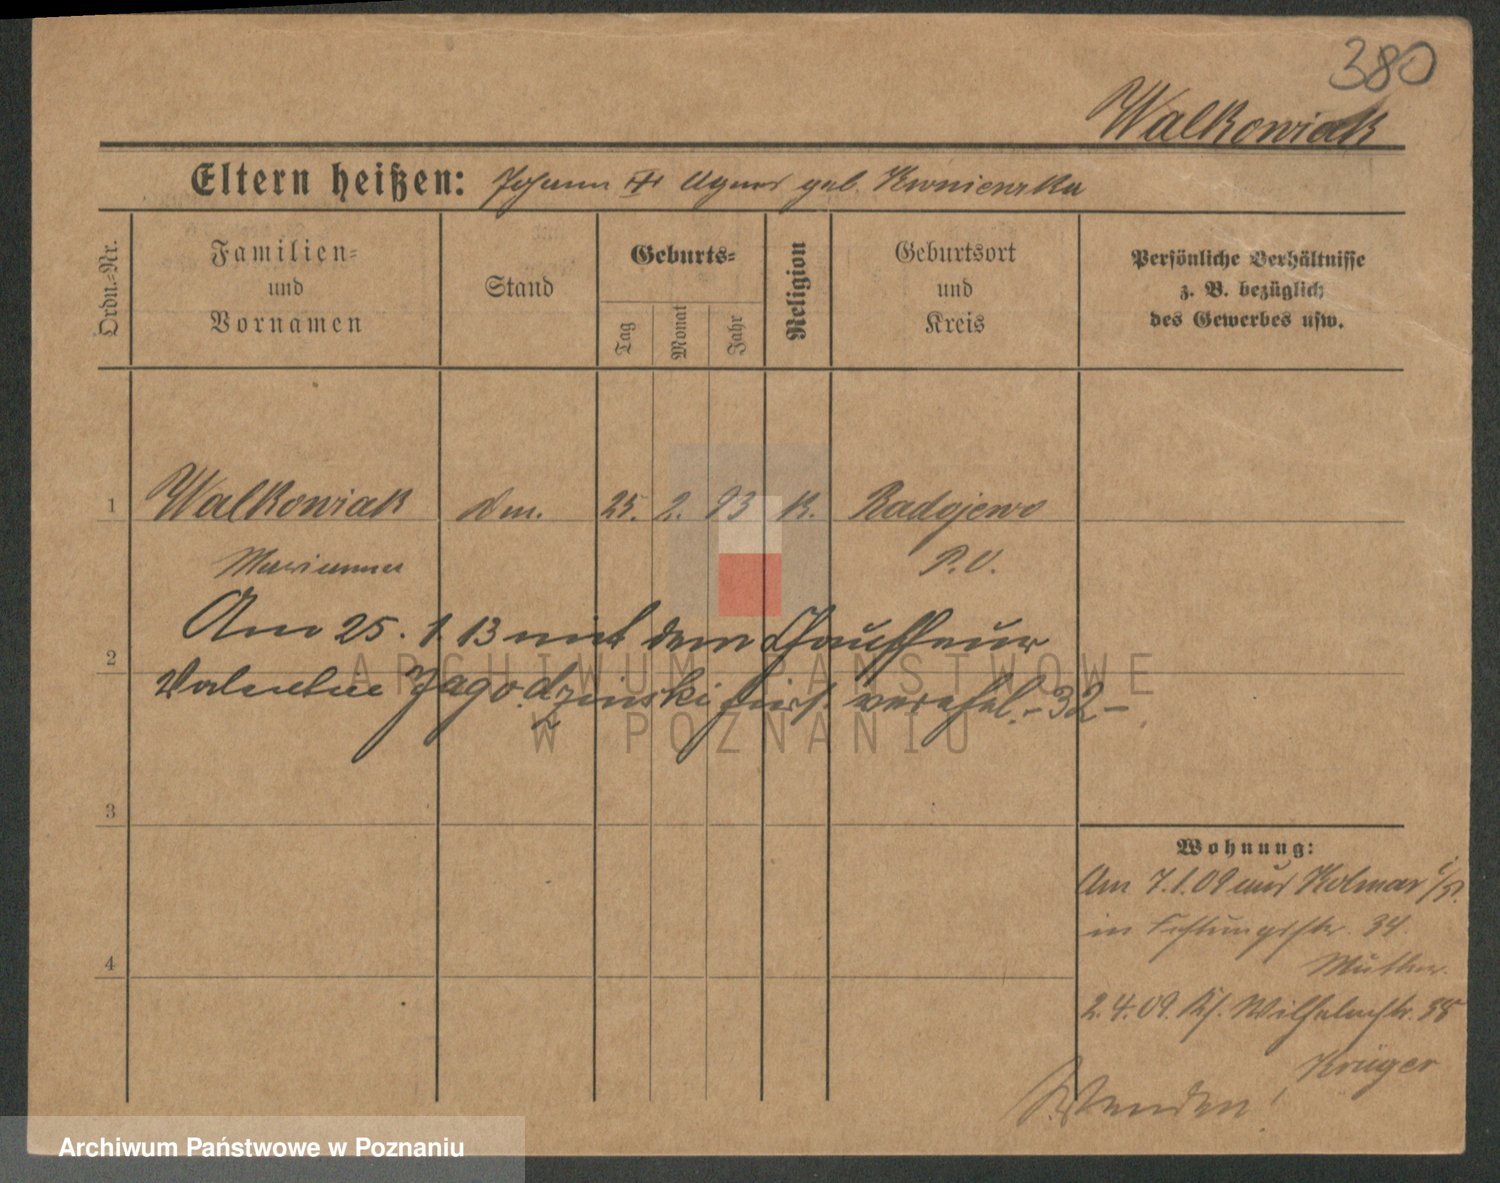 380
Walkowiak
Eltern heißen: Johann Agnes geb.
Ordn.-Nr.
Familien-
und
Vornamen
Stand
Geburts-
Tag
Monat
Jahr
Religion
Geburtsort
und
Kreis
Persönliche Verhältnisse
z. B. bezüglich
des Gewerbes usw.
1 Walkowiak dm. 25. 2. 93 K. Radojewo
Marianna P. O.
Am 25. 1. 13 mit dem Chauffeur
2
Valentin Jagodzinski hier verehel. - 32 -
ARCHIWUM PAŃSTWOWE
W POZNANIU
3
4
Wohnung:
Am 7.1.09 aus Kolmar i/P.
in Festungsstr. 34.
2.4.09. Wilhelmstr. 38
Krüger
Wenden!
Archiwum Państwowe w Poznaniu